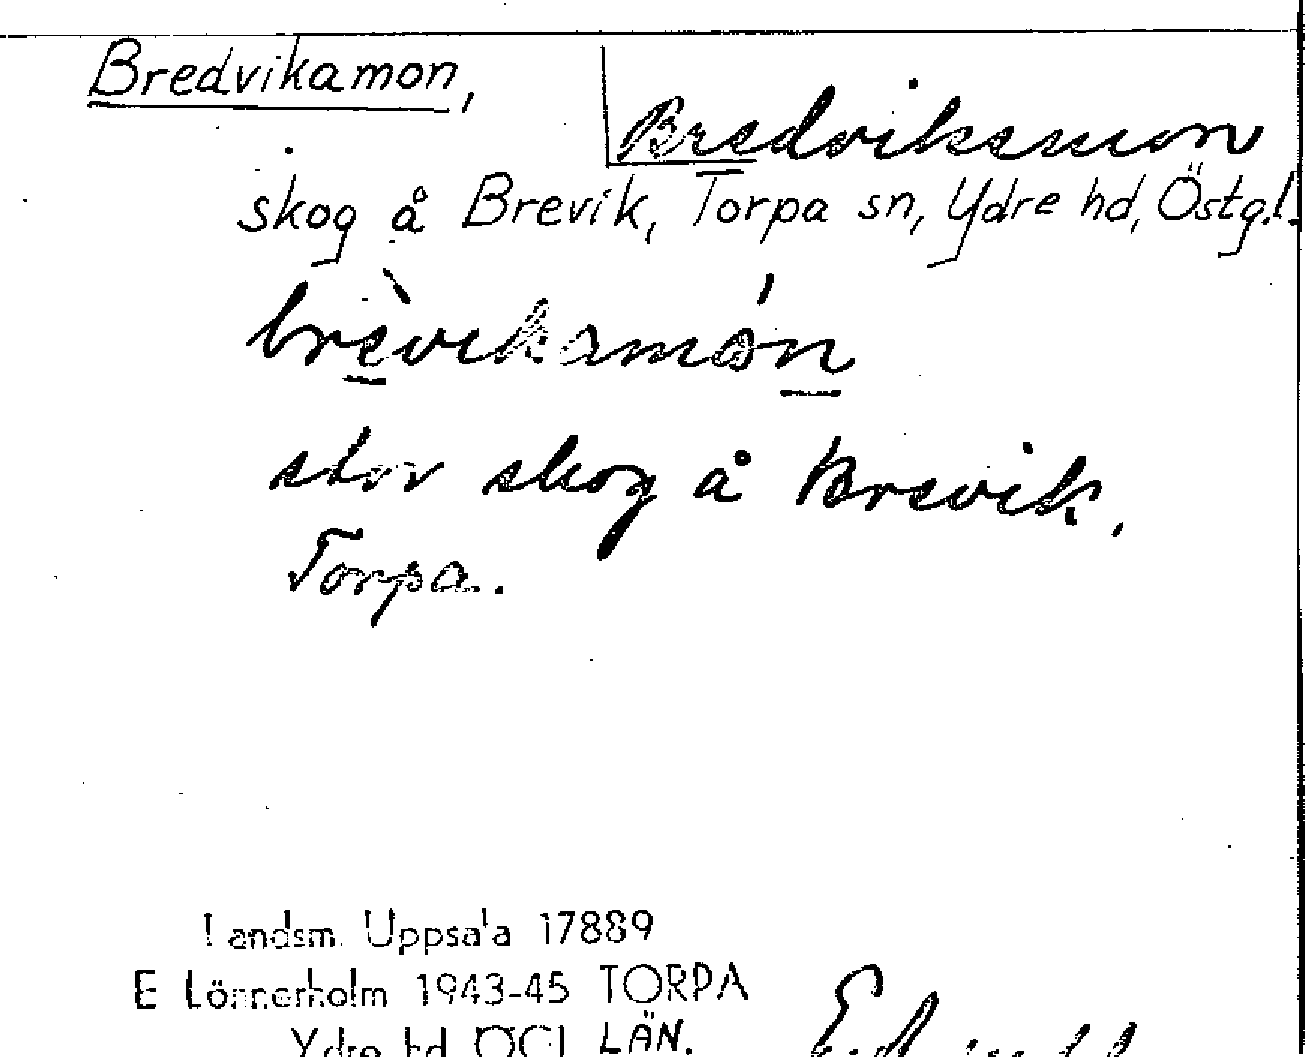 Bredvikamon,
Bredviksmon
skog å Brevik, Torpa sn, Ydre hd, Östg.l.
brèvikamón
stor skog å Brevik,
Torpa.
Landsm. Uppsala 17889
E Lönnerholm 1943-45 TORPA
Ydre hd ÖGL LÄN.